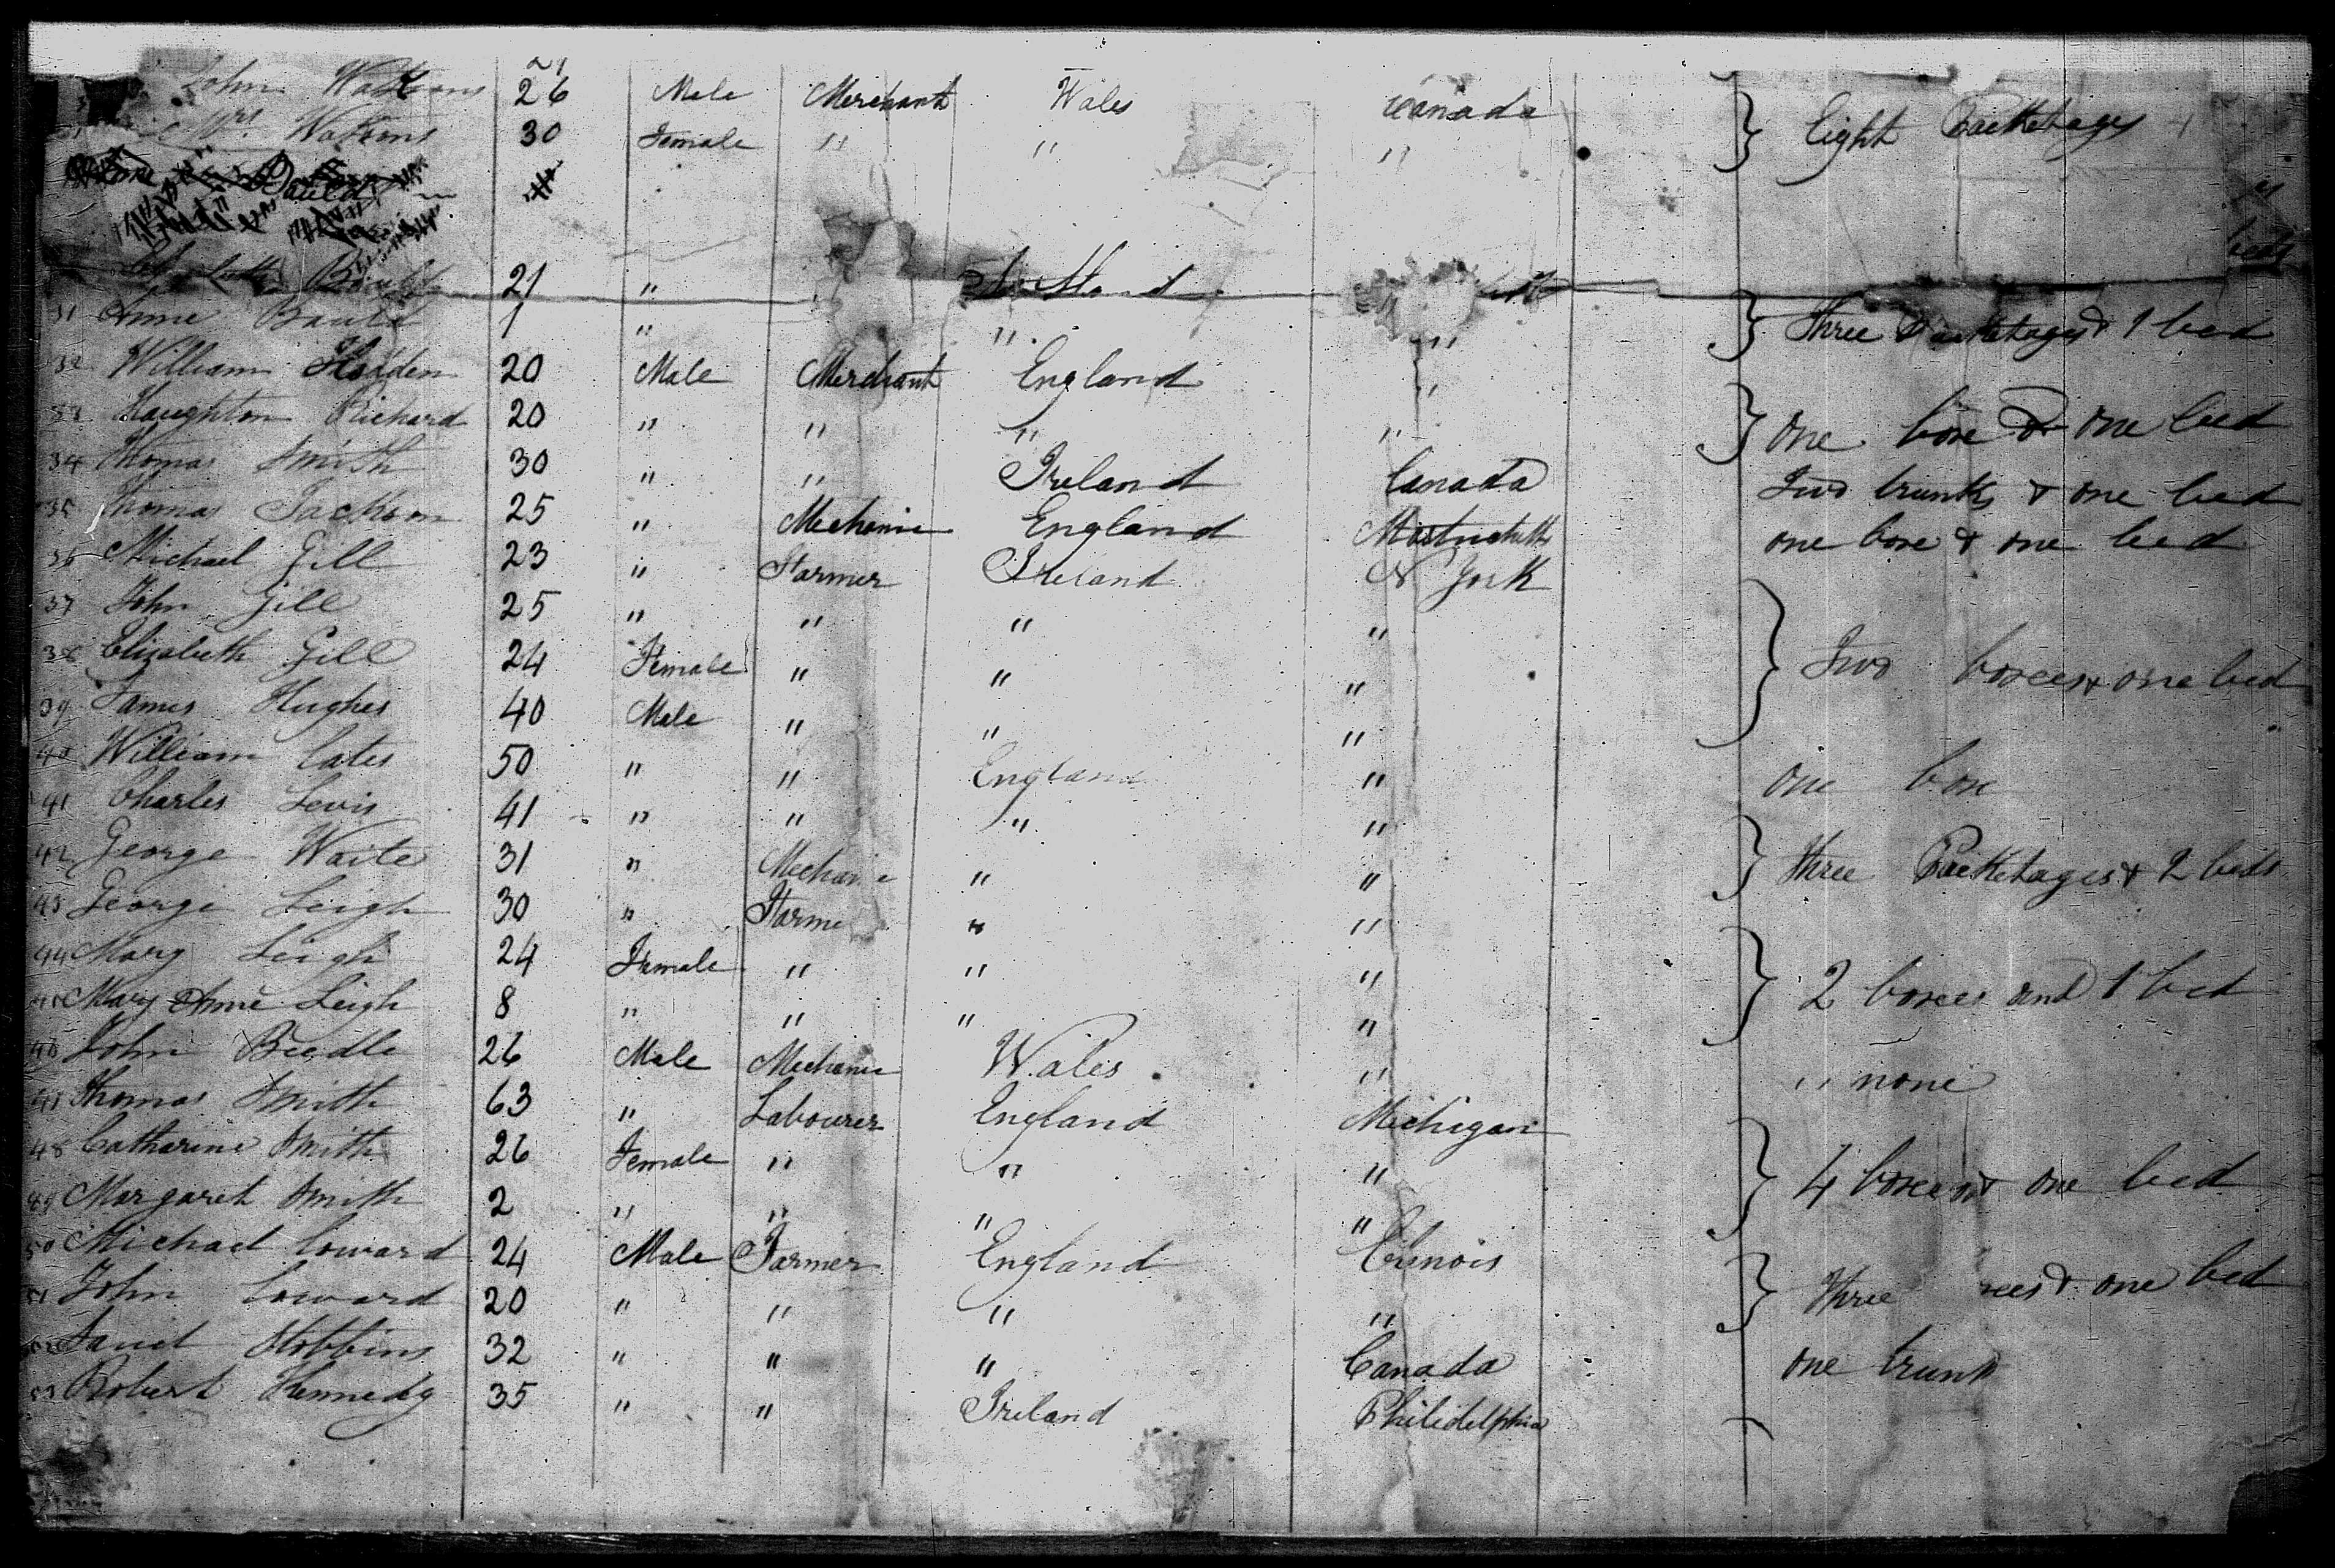 John Watkins 26 Male Merchant Wales Canada
Mrs Watkins 30 Female " " " } Eight Packetages
Bauld
beds
Bauld 21 "
31 Anne Bauld 1 " " " } Three Packetages & 1 bed
32 William Hodden 20 Male Merchant England "
33 Haughton Richard 20 " " " " } one boxe & one bed
34 Thomas Smith 30 " " Ireland Canada Two trunks & one bed
35 Thomas Jackson 25 " Mechanic England one boxe & one bed
36 Michael Gill 23 " Farmer Ireland N York
37 John Gill 25 " " " "
38 Elizabeth Gill 24 Female " " " } Two boxces & one bed
39 James Hughes 40 Male " " "
40 William Cates 50 " " England " one boxe
41 Charles Lewis 41 " " " "
42 George Waite 31 " Mechanic " " } Three Packetages & 2 beds
43 George Leigh 30 " Farme " "
44 Mary Leigh 24 Female " " "
45 Mary Anne Leigh 8 " " " " } 2 boxces and 1 bed
46 John Beedle 26 Male Mechanic Wales " " none
47 Thomas Smith 63 " Labourer England Michigan
48 Catharine Smith 26 Female " " " } 4 boxces & one bed
49 Margaret Smith 2 " " " "
50 Michael Coward 24 Male Farmer England Illinois
51 John Coward 20 " " " " } Three xces & one bed
52 Hobbins 32 " " " Canada one trunk
53 Robert Kennedy 35 " " Ireland Philidelphia